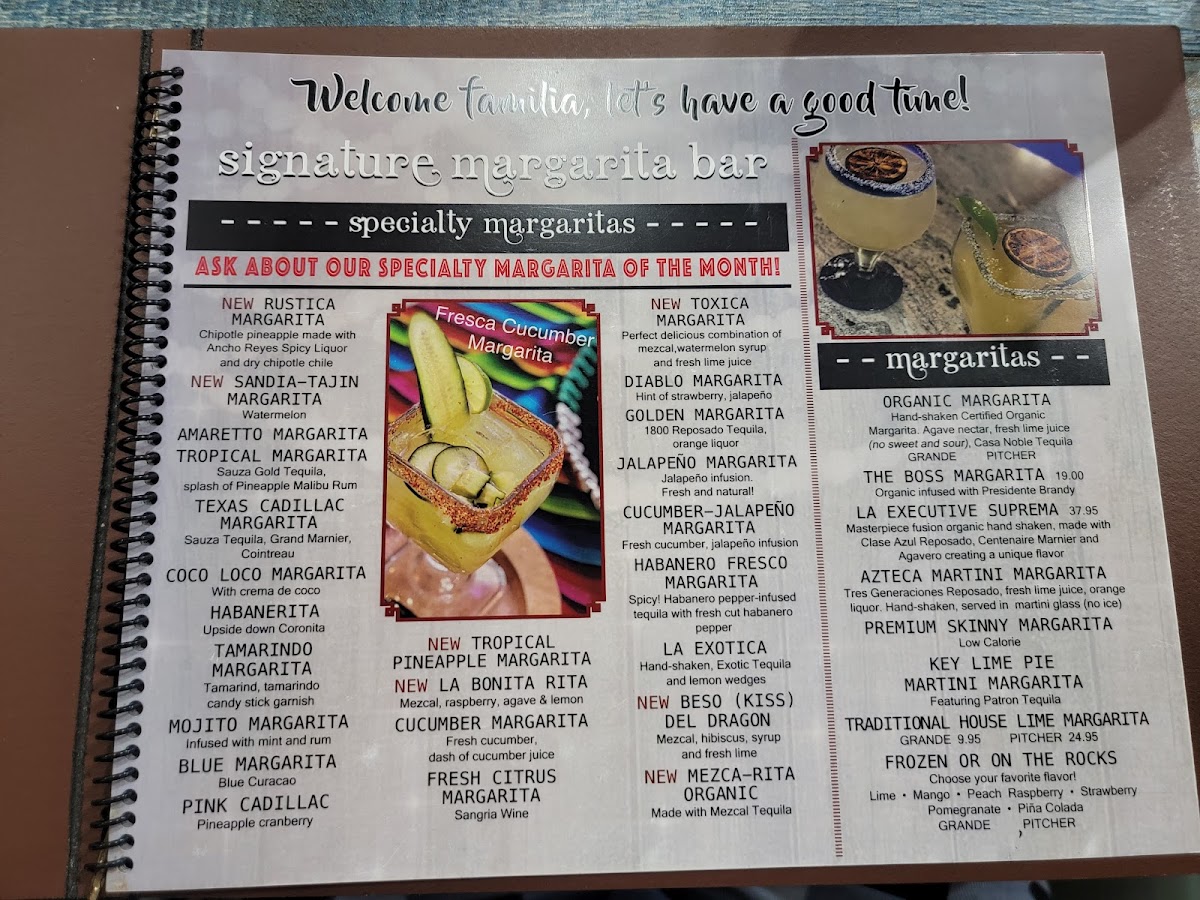 Welcome familia, let's have a good time!
signature margarita bar
- - - - - specialty margaritas - - - - -
ASK ABOUT OUR SPECIALTY MARGARITA OF THE MONTH!
NEW RUSTICA
MARGARITA
Chipotle pineapple made with
Ancho Reyes Spicy Liquor
and dry chipotle chile
NEW SANDIA-TAJIN
MARGARITA
Watermelon
AMARETTO MARGARITA
TROPICAL MARGARITA
Sauza Gold Tequila,
splash of Pineapple Malibu Rum
TEXAS CADILLAC
MARGARITA
Sauza Tequila, Grand Marnier,
Cointreau
COCO LOCO MARGARITA
With crema de coco
HABANERITA
Upside down Coronita
TAMARINDO
MARGARITA
Tamarind, tamarindo
candy stick garnish
MOJITO MARGARITA
Infused with mint and rum
BLUE MARGARITA
Blue Curacao
PINK CADILLAC
Pineapple cranberry
Fresca Cucumber
Margarita
NEW TROPICAL
PINEAPPLE MARGARITA
NEW LA BONITA RITA
Mezcal, raspberry, agave & lemon
CUCUMBER MARGARITA
Fresh cucumber,
dash of cucumber juice
FRESH CITRUS
MARGARITA
Sangria Wine
NEW TOXICA
MARGARITA
Perfect delicious combination of
mezcal,watermelon syrup
and fresh lime juice
DIABLO MARGARITA
Hint of strawberry, jalapeño
GOLDEN MARGARITA
1800 Reposado Tequila,
orange liquor
JALAPEÑO MARGARITA
Jalapeño infusion.
Fresh and natural!
CUCUMBER-JALAPEÑO
MARGARITA
Fresh cucumber, jalapeño infusion
HABANERO FRESCO
MARGARITA
Spicy! Habanero pepper-infused
tequila with fresh cut habanero
pepper
LA EXOTICA
Hand-shaken, Exotic Tequila
and lemon wedges
NEW BESO (KISS)
DEL DRAGON
Mezcal, hibiscus, syrup
and fresh lime
NEW MEZCA-RITA
ORGANIC
Made with Mezcal Tequila
- - margaritas - -
ORGANIC MARGARITA
Hand-shaken Certified Organic
Margarita. Agave nectar, fresh lime juice
(no sweet and sour), Casa Noble Tequila
GRANDE PITCHER
THE BOSS MARGARITA 19.00
Organic infused with Presidente Brandy
LA EXECUTIVE SUPREMA 37.95
Masterpiece fusion organic hand shaken, made with
Clase Azul Reposado, Centenaire Marnier and
Agavero creating a unique flavor
AZTECA MARTINI MARGARITA
Tres Generaciones Reposado, fresh lime juice, orange
liquor. Hand-shaken, served in martini glass (no ice)
PREMIUM SKINNY MARGARITA
Low Calorie
KEY LIME PIE
MARTINI MARGARITA
Featuring Patron Tequila
TRADITIONAL HOUSE LIME MARGARITA
GRANDE 9.95 PITCHER 24.95
FROZEN OR ON THE ROCKS
Choose your favorite flavor!
Lime • Mango • Peach Raspberry • Strawberry
Pomegranate • Piña Colada
GRANDE PITCHER